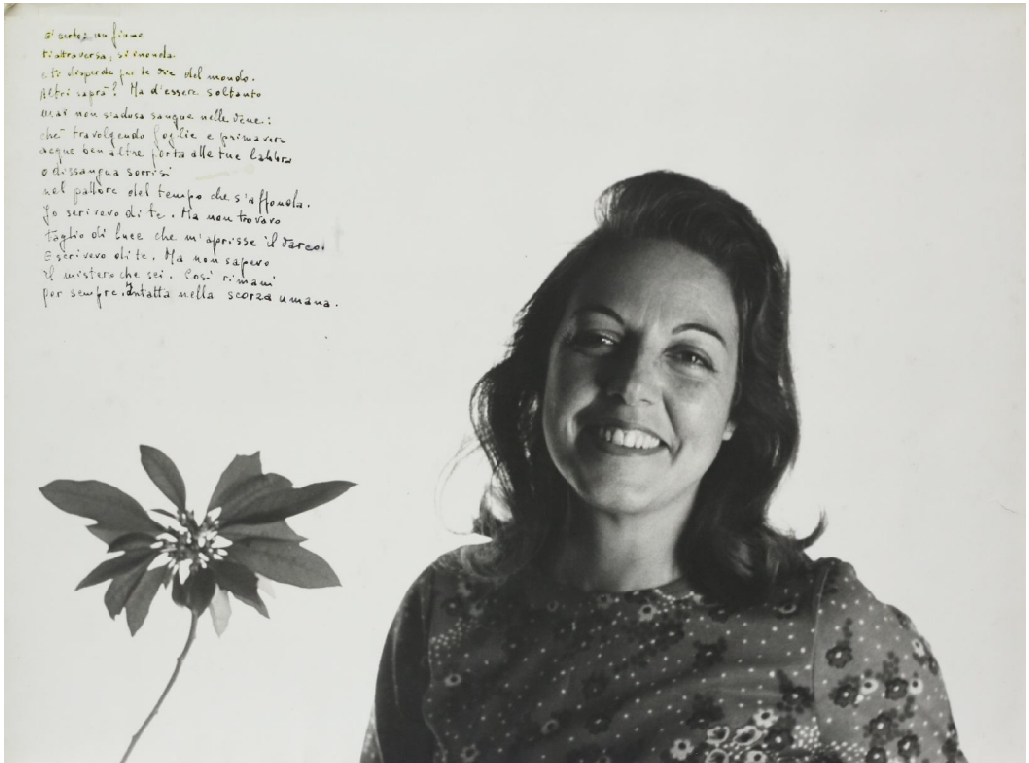 un fiume
ti attraversa, si snoda
e ti disperde per le vie del mondo.
Altri saprà? Ma d'essere soltanto
mai non s'adusa sangue nelle vene:
chè travolgendo foglie e primavere
acque ben altre porta alle tue labbra
o dissangua sorrisi
nel pallore del tempo che s'affonda.
Io scrivevo di te. Ma non trovavo
taglio di luce che m'aprisse il varco.
E scrivevo di te. Ma non sapevo
il mistero che sei. Così rimani
per sempre intatta nella scorza umana.